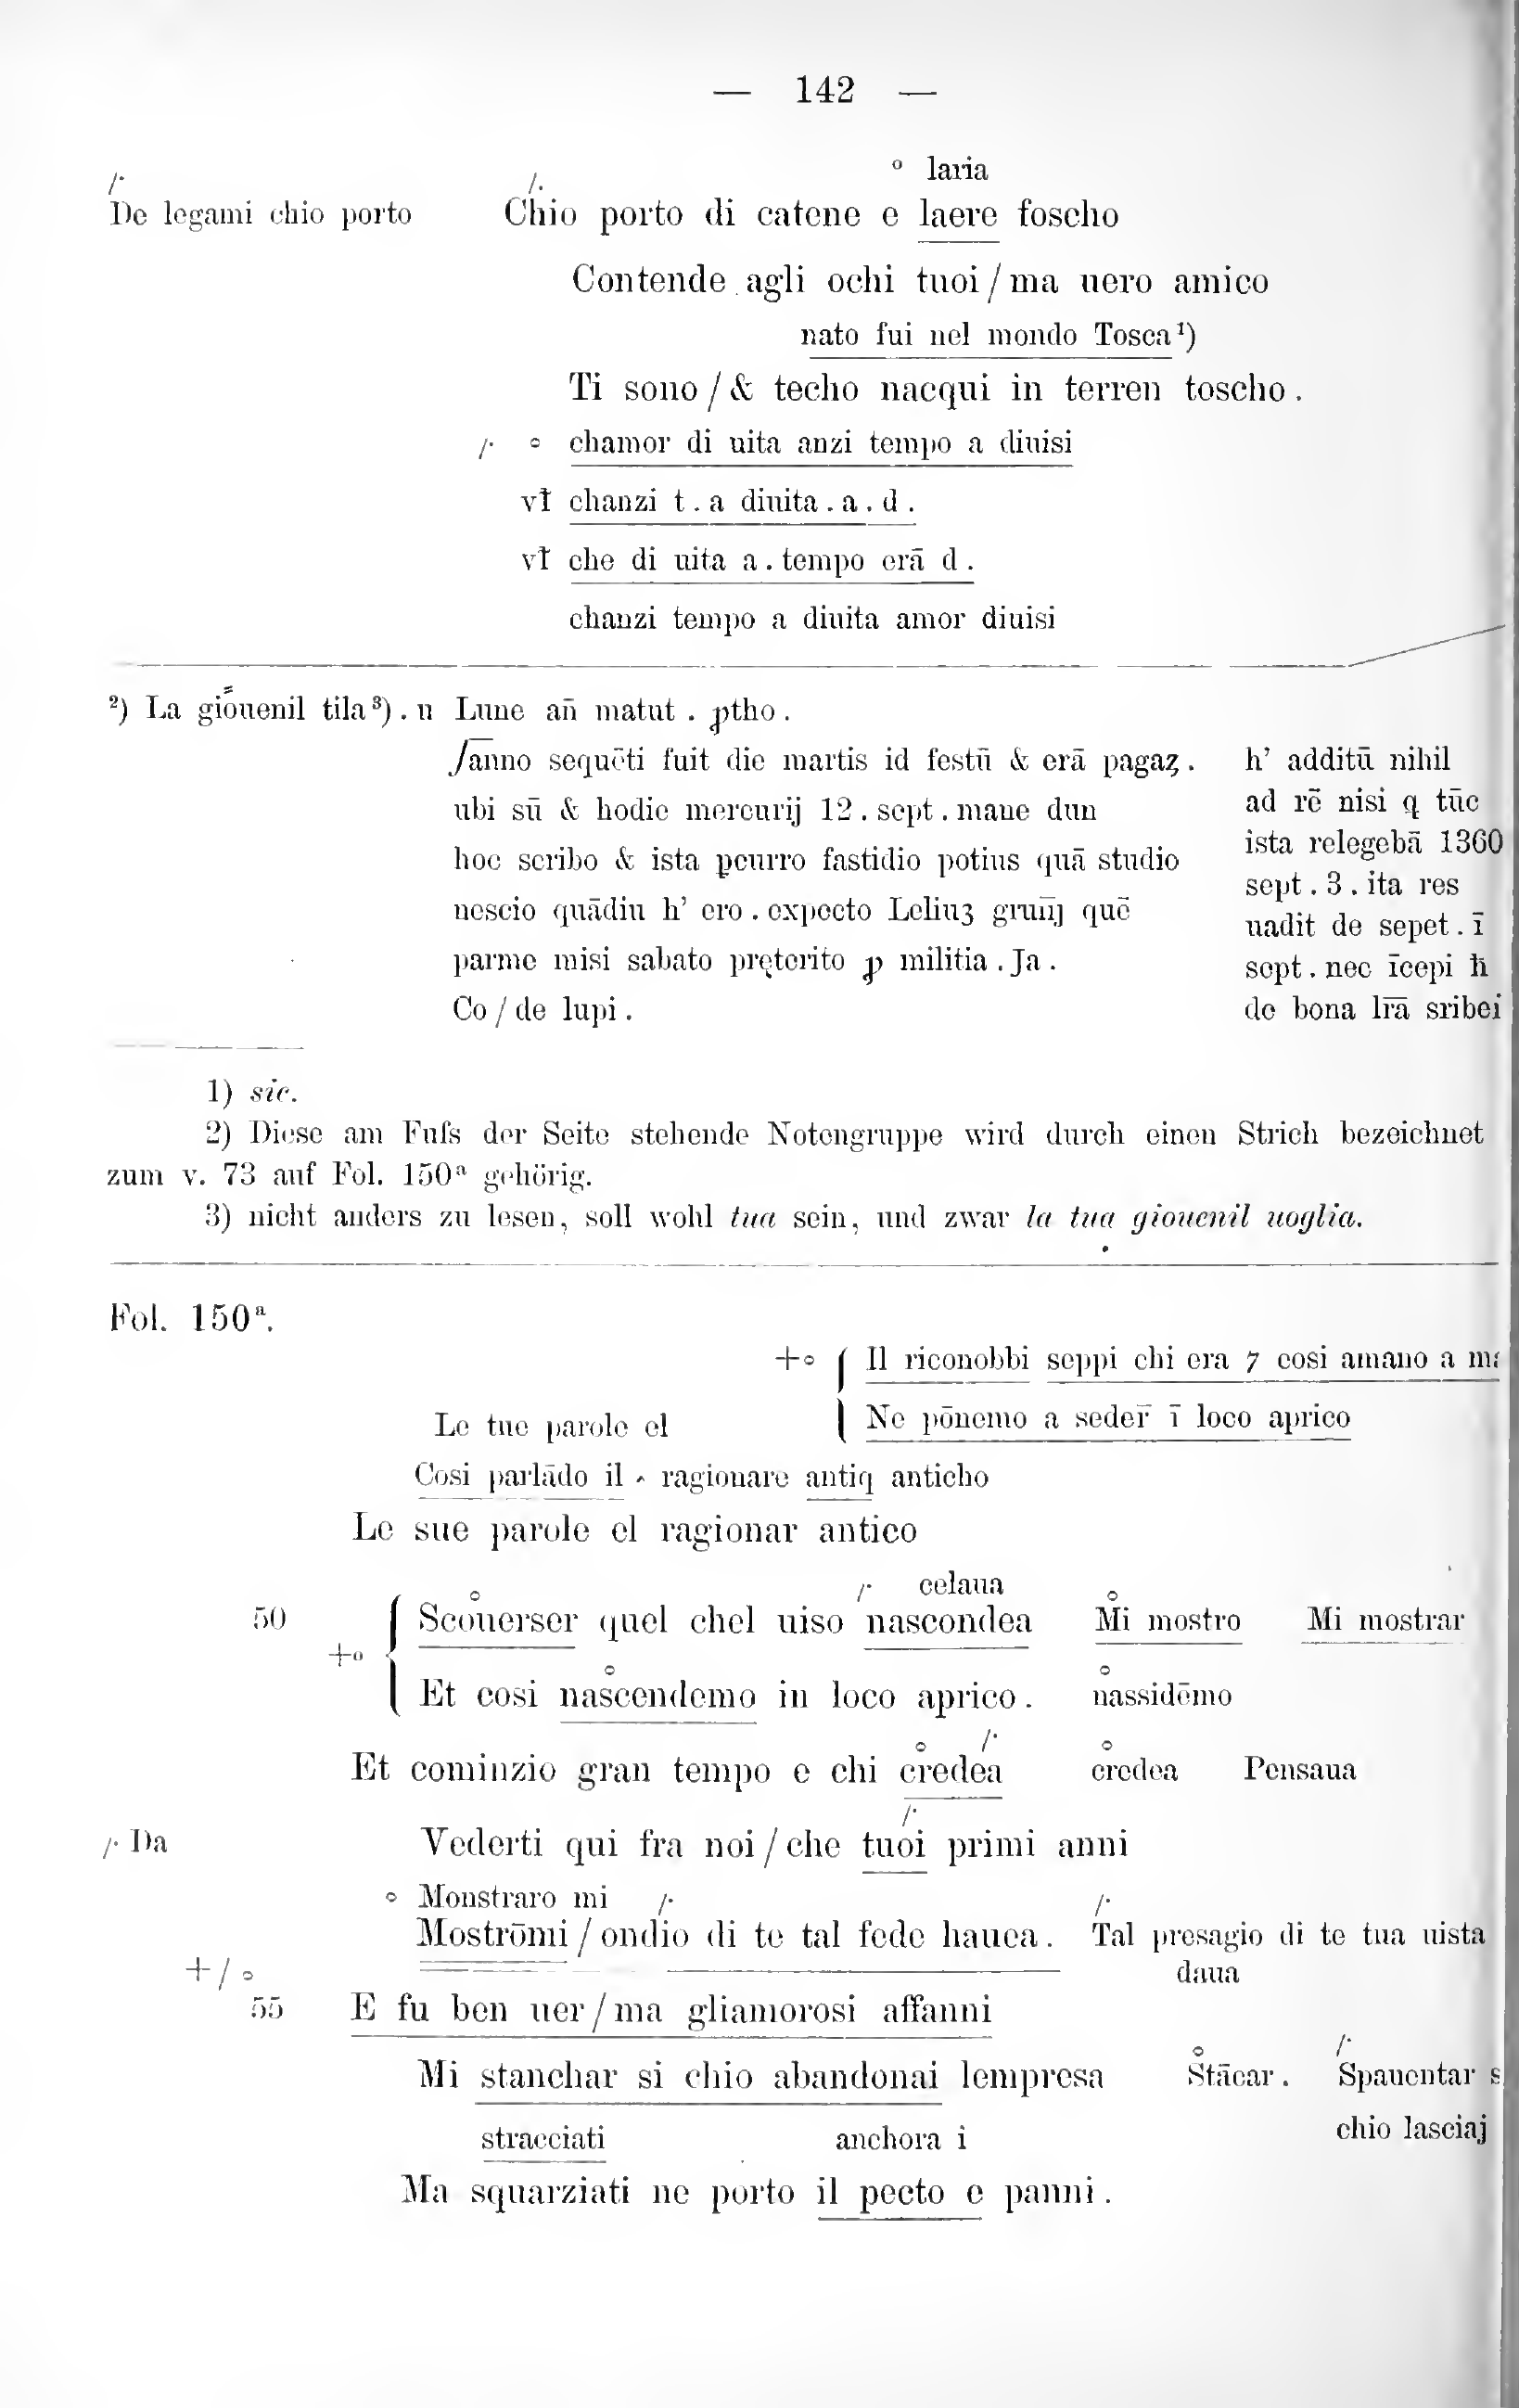 — 142 —
° laria
/· /.
De legami chio porto Chio porto di catene e laere foscho
Contende agli ochi tuoi / ma uero amico
nato fui nel mondo Tosca¹)
Ti sono / & techo nacqui in terren toscho .
/· ° chamor di uita anzi tempo a diuisi
vł chanzi t . a diuita . a . d .
vł che di uita a . tempo erā d .
chanzi tempo a diuita amor diuisi
²) La giouenil tila³) . u Lune an̄ matut . ꝓtho .
anno sequēti fuit die martis id festū & erā pagaʒ .
ubi sū & hodie mercurij 12 . sept . mane dun
hoc scribo & ista ꝑcurro fastidio potius quā studio
nescio quādiu h’ ero . expecto Leliuʒ quē
parme misi sabato pręterito ꝓ militia . Ja .
Co / de lupi .
h’ additū nihil
ad rē nisi q tūc
ista relegebā 1360
sept . 3 . ita res
uadit de sepet . ī
sept . nec īcepi ħ
de bona lr̄ā sribei
1) sic.
2) Diese am Fuſs der Seite stehende Notengruppe wird durch einen Strich bezeichnet
zum v. 73 auf Fol. 150ª gehörig.
3) nicht anders zu lesen, soll wohl tua sein, und zwar la tua giouenil uoglia.
Fol. 150ª.
+° Il riconobbi seppi chi era 7 cosi amano a
Le tue parole el Ne pōnemo a seder̄ ī loco aprico
Cosi parlādo il ‸ ragionare antiq anticho
Le sue parole el ragionar antico
° /· celaua °
50 Scouerser quel chel uiso nascondea Mi mostro Mi mostrar
+°
° °
Et cosi nascendemo in loco aprico . nassidēmo
° /· °
Et cominzio gran tempo e chi credea credea Pensaua
/·
/· Da Vederti qui fra noi / che tuoi primi anni
° Monstraro mi /· /·
Mostrōmi / ondio di te tal fede hauea . Tal presagio di te tua uista
+ / ° daua
55 E fu ben uer / ma gliamorosi affanni
° /·
Mi stanchar si chio abandonai lempresa Stācar . Spauentar s
stracciati anchora i chio lasciaj
Ma squarziati ne porto il pecto e panni .